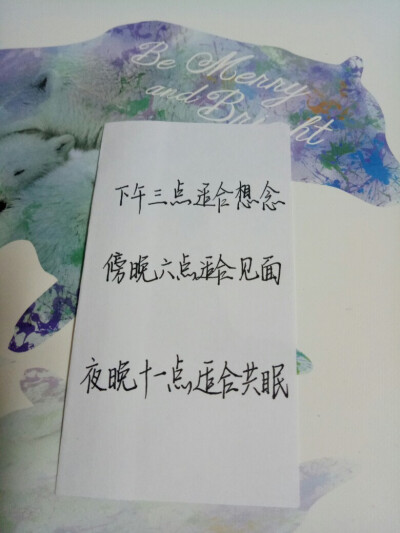 Be Merry
and Bright
下午三点适合想念
傍晚六点适合见面
夜晚十一点适合共眠